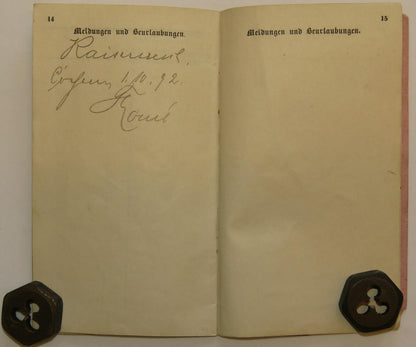 14
Meldungen und Beurlaubungen.
Cochem 1.10.92.
15
Meldungen und Beurlaubungen.